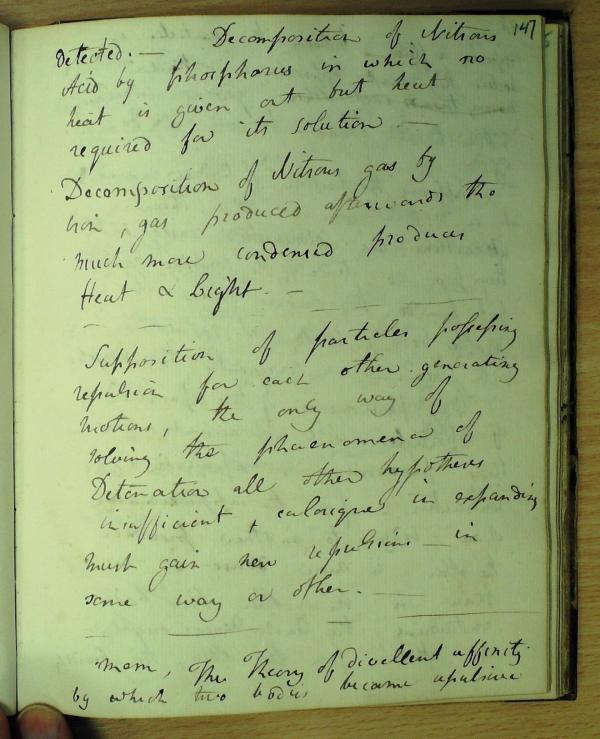 147
detected. — Decomposition of Nitrous
Acid by phosphorus in which no
heat is given out but heat
required for its solution —
Decomposition of Nitrous gas by
iron, gas produced afterwards tho
much more condensed produces
Heat & Light. —
Supposition of particles possessing
repulsion for each other generating
motions, the only way of
solving the phaenomena of
Detonation all other hypotheses
insufficient, & calorique in expanding
must gain new repulsion — in
some way or other. —
Mem, The Theory of divellent affinity
by which two bodies become repulsive